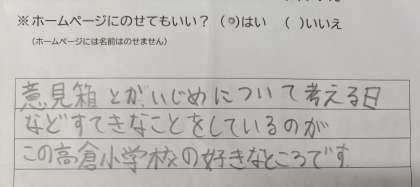 ※ホームページにのせてもいい？ （◎）はい （ ）いいえ
（ホームページには名前はのせません）
意見箱とか、いじめについて考える日
などすてきなことをしているのが
この高倉小学校の好きなところです